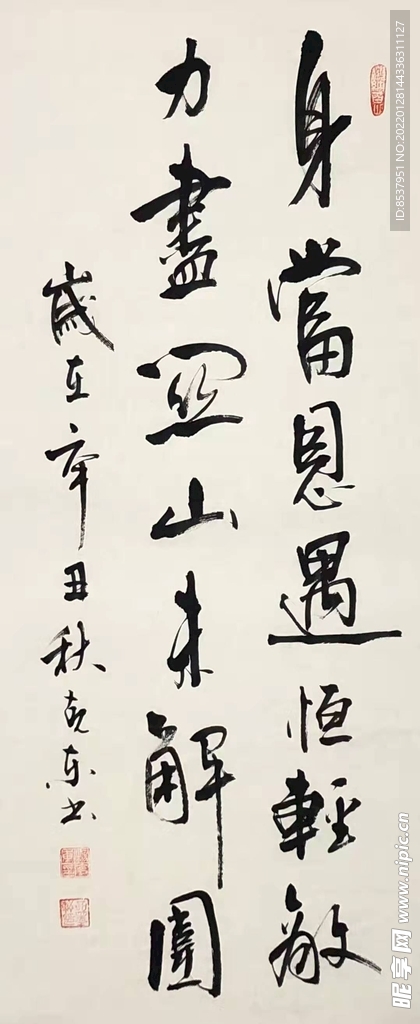 身當恩遇恒輕敵
力盡關山未解圍
歲在辛丑秋克东书
ID:8537951 NO:20220128144336311127
昵享网 www.nipic.cn